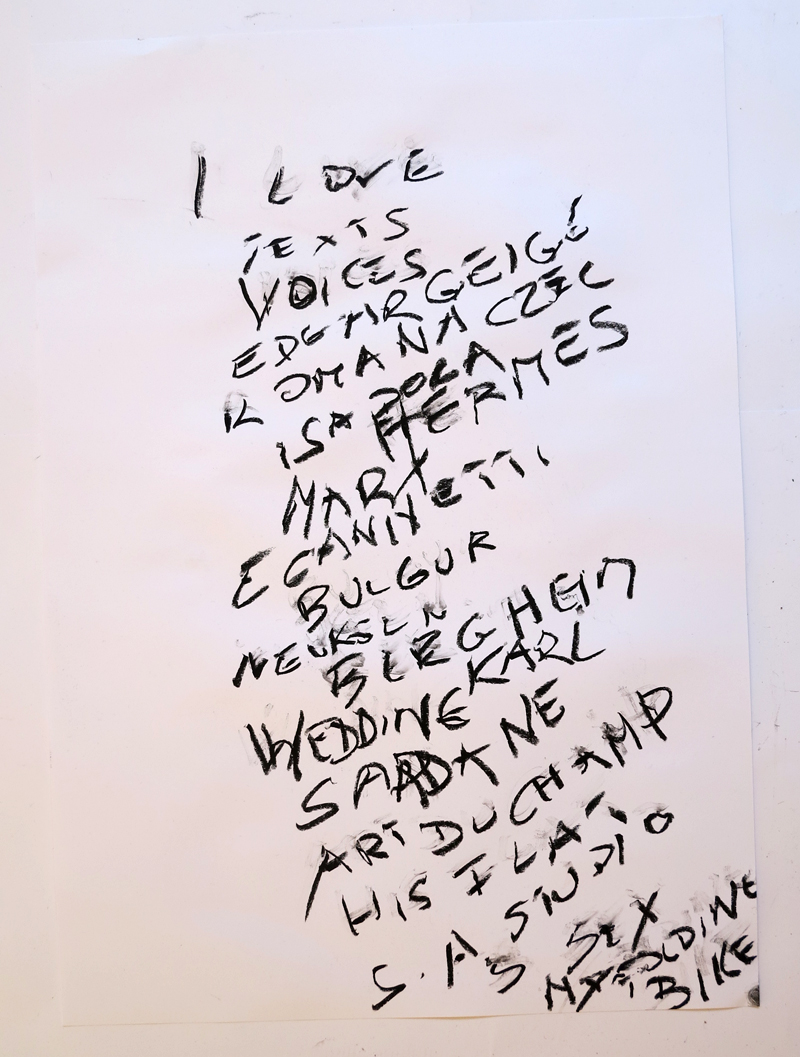 I LOVE
TEXTS
VOICES
EDGAR GEIGE
ROMANA CZEC
ISABOLA
HERMES
MARX
E CANNETTI
BULGUR
NEUKÖLN
BERGHEIM
KARL
WEDDING
SARDANE
ART DUCHAMP
HIS FLAT
S. A STUDIO
AS SEX
MY FOLDING
BIKE